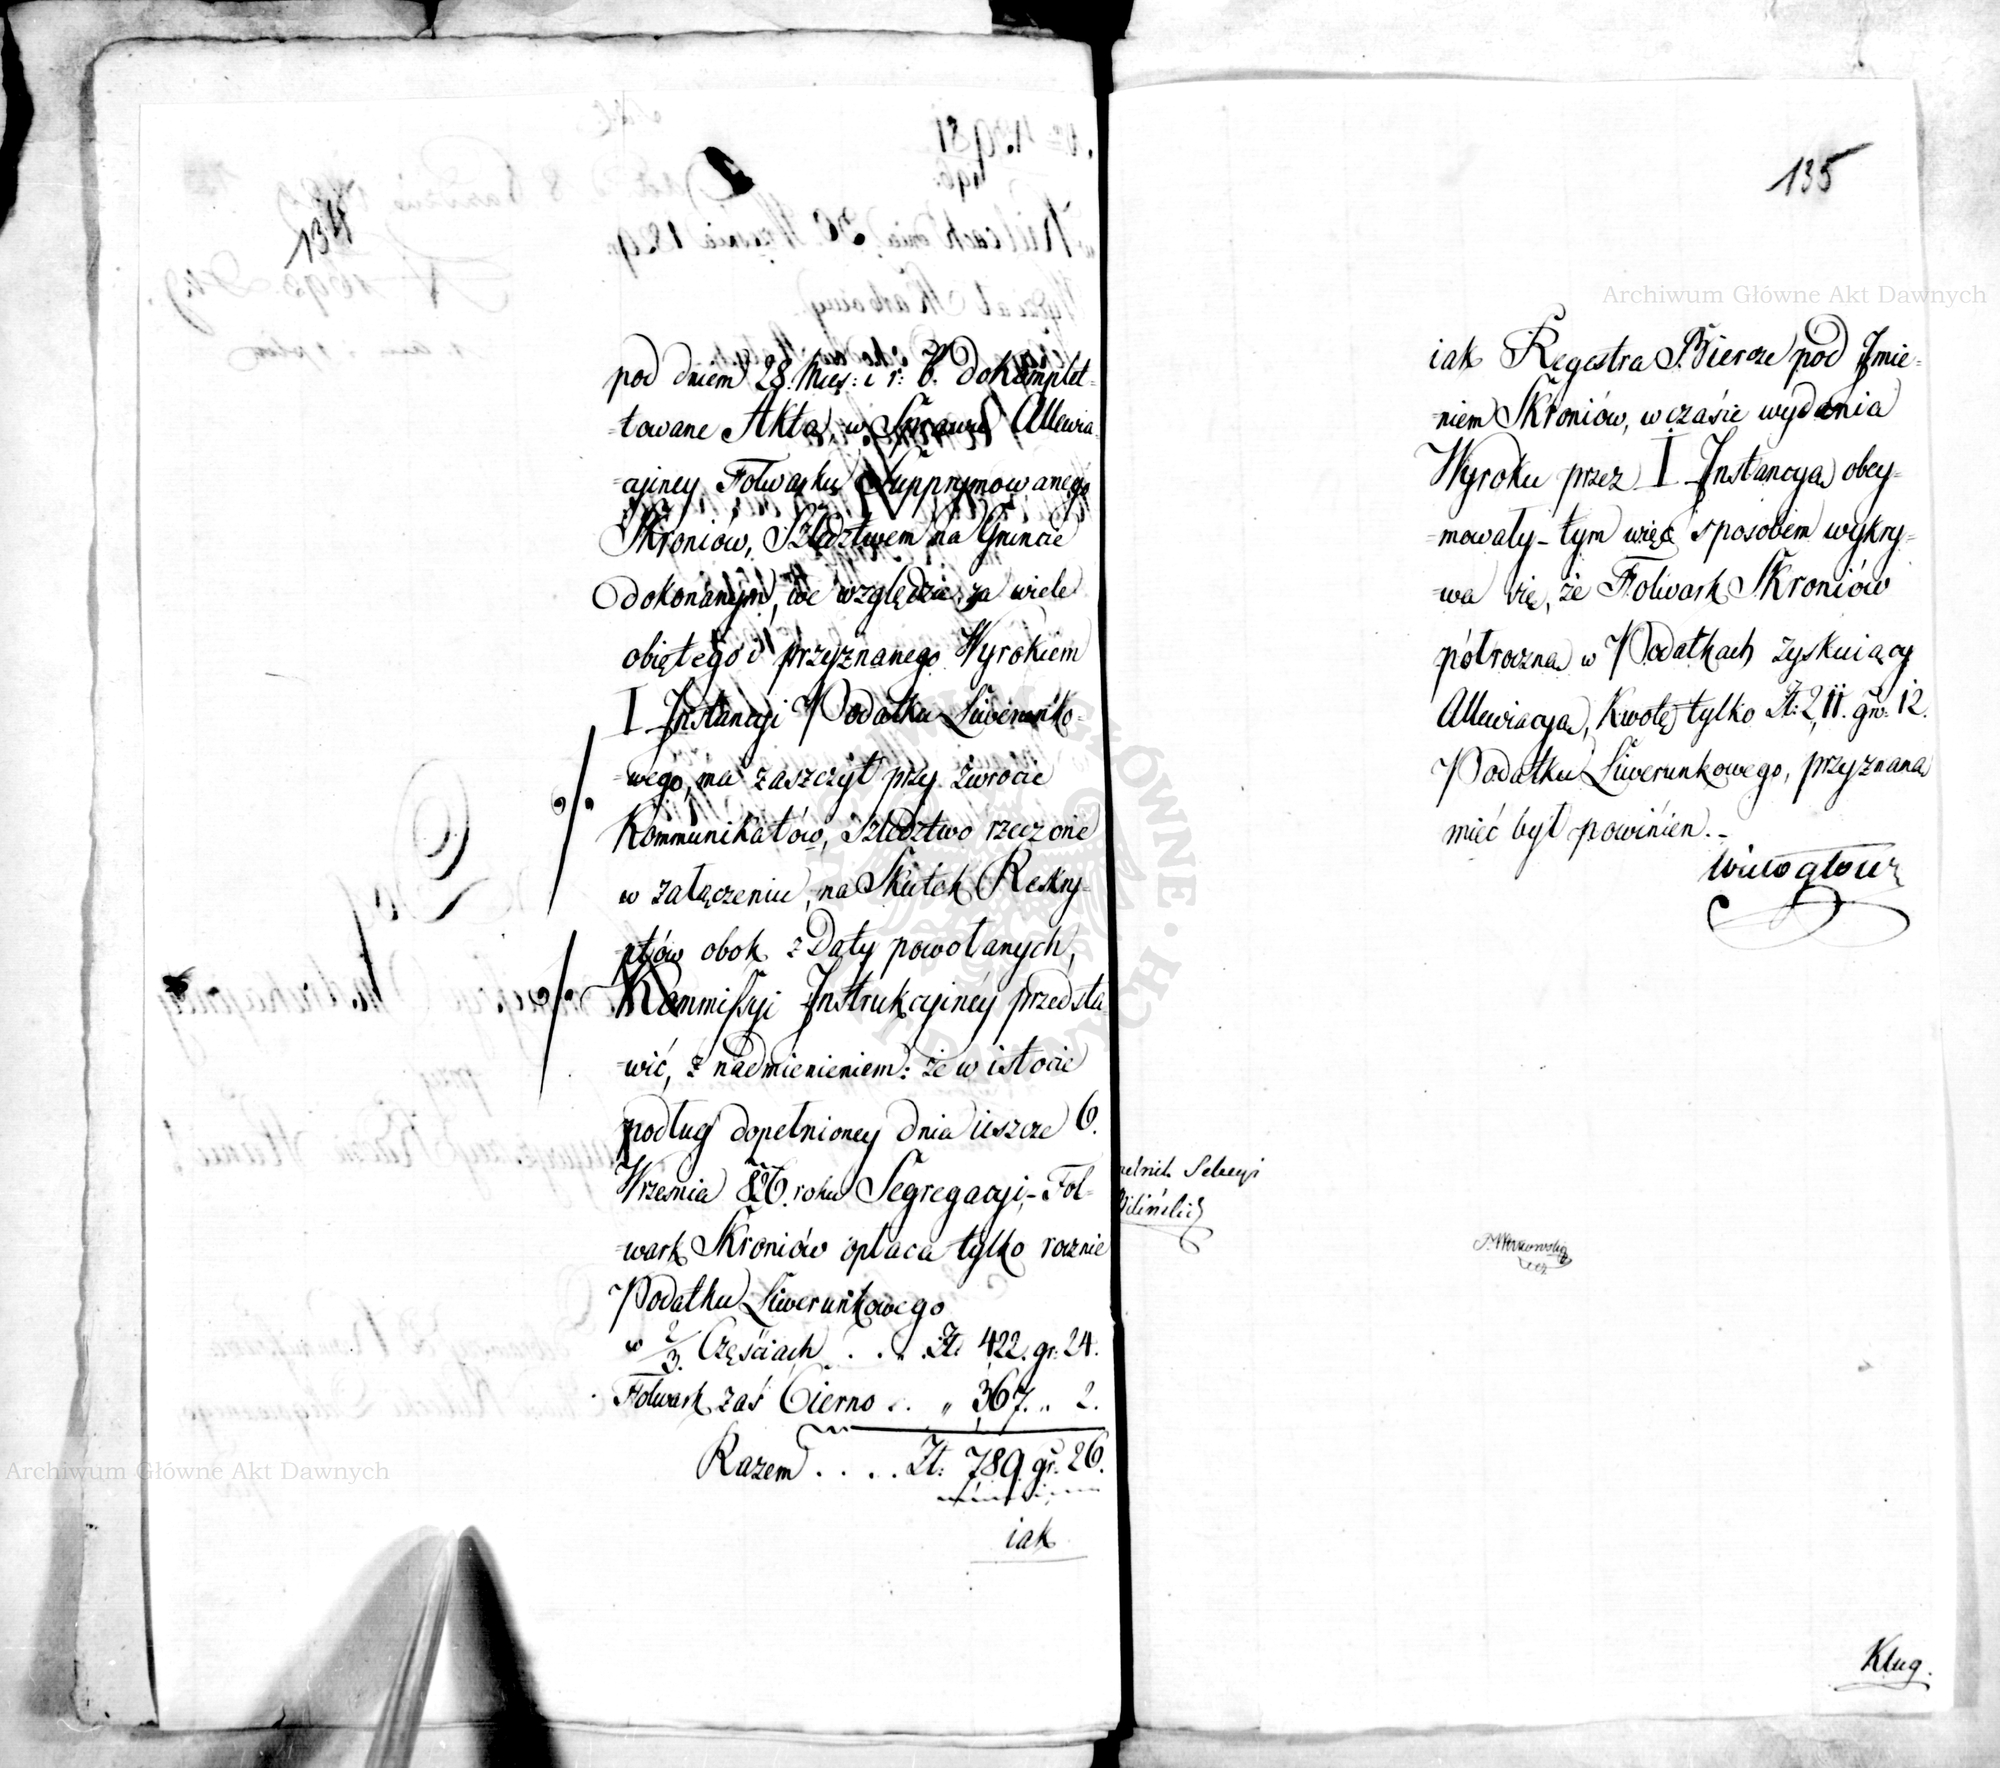 134
pod dniem 28. Mies: i r: b. dokomplet=
=towane Akta w Sprawie Allewia=
=cyiney Folwarku Supprymowanego
Skroniów, Szledztwem na Gruncie
dokonanym, we względzie za wiele
obiętego i przyznanego Wyrokiem
I Instancyi Podatku Liwerunko=
=wego, ma zaszczyt przy zwrocie
Kommunikatów, Szledztwo rzeczone
w załączeniu, na Skutek Reskry=
ptów obok z Daty powołanych,
Kommissyi Instrukcyiney przedsta=
=wić, z nadmienieniem: że w istocie
podług dopełnioney dnia ieszcze 6.
Września 826. roku Segregacyi, - Fol=
=wark Skroniów opłaca tylko rocznie
Podatku Liwerunkowego
w 2/3. Częściach . . . . Zł. 422. gr: 24.
Folwark zaś Cierno . . „ 367. „ 2.
Razem . . . . Zł: 789. gr: 26.
iak
Archiwum Główne Akt Dawnych
135
Archiwum Główne Akt Dawnych
iak Regestra Biercze pod Imie=
niem Skroniów, w czasie wydania
Wyroku przez I Instancyą obey=
=mowały - tym więc sposobem wykry=
=wa się, że Folwark Skroniów
półroczną w Podatkach zyskuiący
Allewiacyą, Kwotę tylko Zł: 211. gr: 12.
Podatku Liwerunkowego, przyznaną
mieć był powinien. -
Wielogłows
Bilińskie
Klug.